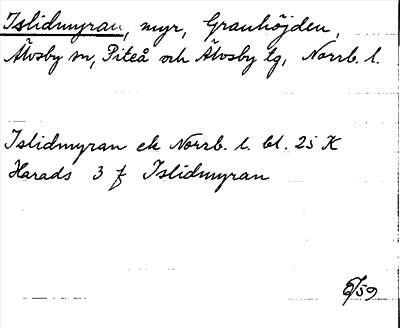 Islidmyran, myr, Granhöjden,
Älvsby sn, Piteå och Älvsby tg, Norrb. l.
Islidmyran ek Norrb. l. bl. 25 K
Harads 3 f Islidmyran
6/59